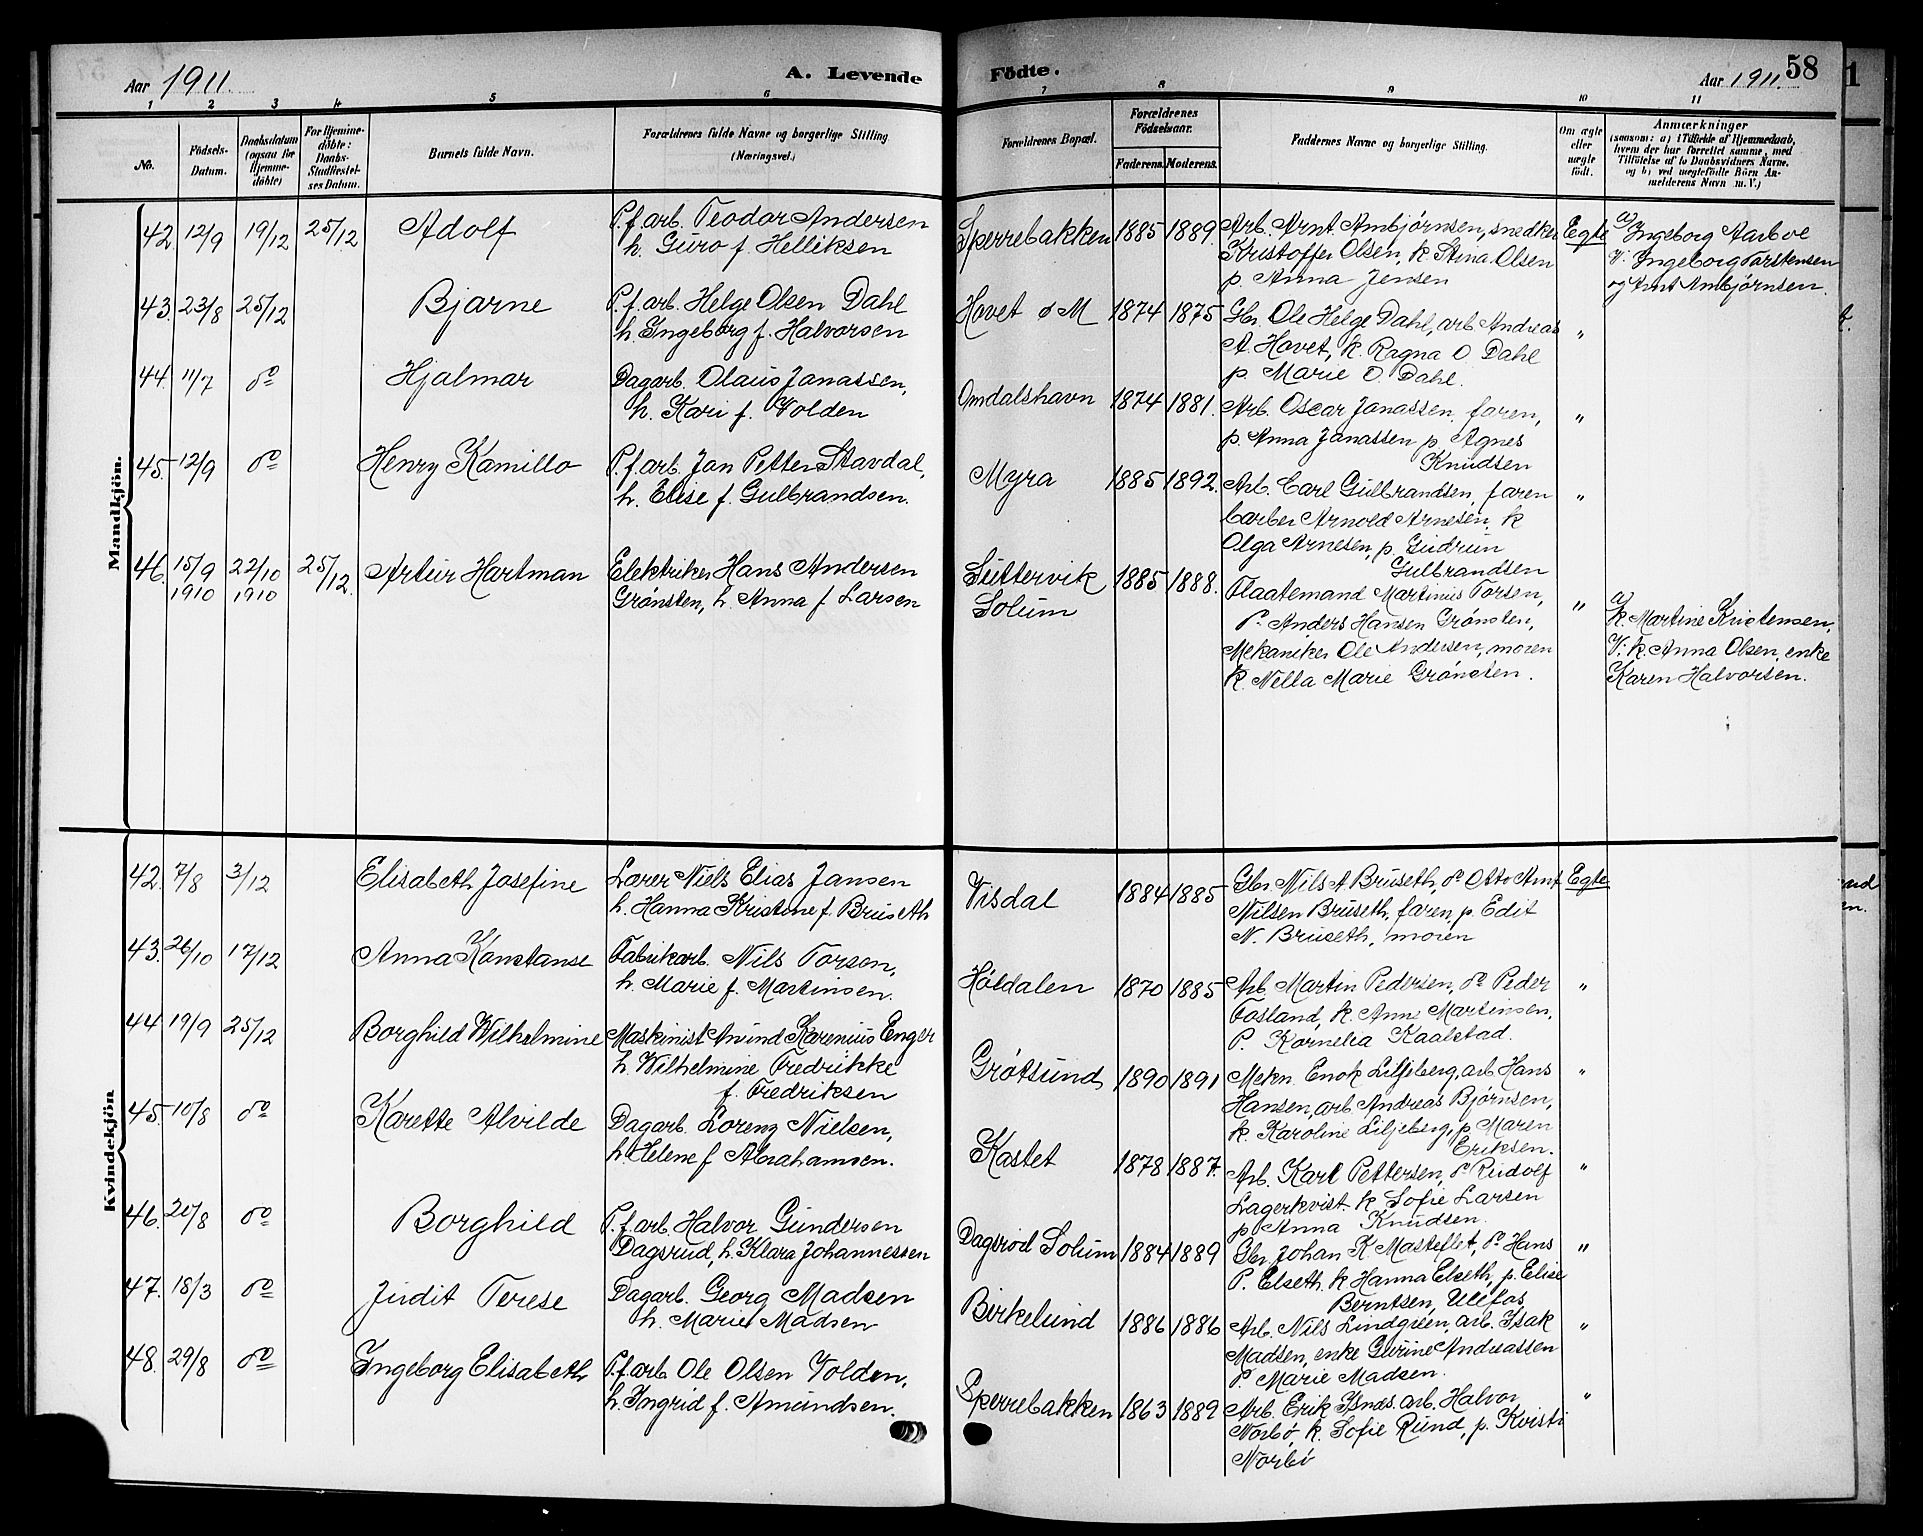 Aar 1911.
A. Levende
Födte.
Aar 1911.
58
1 2 3 4 5 6 7 8 9 10 11
No.
Födsels-
Datum.
Daabsdatum
(ogsaa for
Hjemme-
döbte)
For Hjemme-
döbte:
Daabs-
Stadfæstel-
ses Datum.
Barnets fulde Navn.
Forældrenes fulde Navne og borgerlige Stilling
(Næringsvei.)
Forældrenes Bopæl.
Forældrenes
Födselsaar.
Faderens. Moderens.
Faddernes Navne og borgerlige Stilling.
Om ægte
eller
uægte
födt.
Anmærkninger
(saasom: a) i Tilfælde af Hjemmedaab,
hvem der har forrettet samme, med
Tilföielse af to Daabsvidners Navne,
og b) ved uægtefödte Börn An-
melderens Navn m. V.)
Mandkjön.
42. 12/9 19/12 25/12 Adolf
P.f.arb. Teodor Andersen
h. Guro f. Helliksen
Sperrebakken 1885 1889.
Arb. Arnt Ambjørnsen, snedker
Kristoffer Olsen, k Stina Olsen
p. Anna Jensen
Egte
a) Ingeborg Aarbve
V: Ingeborg Torstensen
og Arnt Ambjørnsen.
43. 23/8 25/12 Bjarne
P.f.arb. Helge Olsen Dahl
h. Ingeborg f. Halvorsen
Hovet ø M 1874 1875
Gbr. Ole Helge Dahl, arb Andreas
A. Hovet, k. Ragna O. Dahl
p. Marie O. Dahl.
"
44. 11/7 do Hjalmar
Dagarb. Olaus Janassen,
h. Kari f. Volden
Omdalshavn 1874 1881.
Arb. Oscar Janassen, faren,
p. Anna Janassen p. Agnes
Knudsen
"
45. 12/9 do Henry Kamillo
P.f.arb. Jan Petter Stavdal,
h. Elise f. Gulbrandsen.
Myra 1885 1892.
Arb. Carl Gulbrandsen, faren
barber Arnold Arnesen, k
Olga Arnesen, p. Gudrun
Gulbrandsen
"
46. 15/9 1910 22/10 1910 25/12. Artur Hartman
Elektriker Hans Andersen
Grønsten, h. Anna f Larsen
Suttervik
Solum
1885 1888.
Flaatemand Martinus Torsen,
do Anders Hansen Grønsten,
Mekaniker Ole Andersen, moren
k. Nella Marie Grønsten.
"
a)
k. Martine Kristensen,
V: k. Anna Olsen, enke
Karen Halvorsen.
Kvindekjön
42. 7/8 3/12 Elisabeth Josefine
Lærer Niels Elias Jansen
h. Hanna Kristine f. Bruseth
Visdal 1884 1885
Gbr. Nils A Bruseth, do Otto Arnt
Nilsen Bruseth, faren, p. Edit
N. Bruseth, moren
Egte
43. 26/10 17/12 Anna Konstanse
Fabrikarb. Nils Torsen,
h. Marie f. Martinsen.
Høldalen 1870 1885
Arb. Martin Pedersen, do Peder
Fosland, k. Anne Martinsen,
P. Kornelia Kaalstad.
"
44 19/9 25/12 Borghild Wilhelmine
Maskinist Anund Karenius Enger
h. Wilhelmine Fredrikke
f. Fredriksen
Grøtsund 1890 1891
Mekn. Enok Liljeberg, arb Hans
Hansen, arb. Andreas Bjørnsen,
k. Karoline Liljeberg, p Maren
Eriksen.
"
45. 10/8 do Karette Alvilde
Dagarb. Lorenz Nielsen,
h. Helene f Abrahamsen.
Kastet 1878 1887.
Arb. Karl Pettersen, do Rudolf
Lagerkvist. k Sofie Larsen
p Anna Knudsen.
"
46. 20/8 do Borghild
P.f.arb Halvor Gundersen
Dagsrud, h. Klara Johannessen
Dagsrod Solum 1884 1889
Gbr. Johan K Masteflet, do Hans
P. Elseth, k Hanna Elseth, p. Elise
Berntsen, Ulefos
"
47. 18/3 do Judit Terese
Dagarb. Georg Madsen
h. Marie Madsen
Birkelund 1886 1886
Arb. Nils Lindgren, arb. Isak
Madsen, enke Gurine Andreassen
P. Marie Madsen.
"
48. 29/8 do Ingeborg Elisabeth
P.f.arb. Ole Olsen Volden,
h. Ingrid f. Amundsen.
Sperrebakken 1863 1889
Arb. Erik Isnds. arb. Halvor
Norbø, k. Sofie Rund, p. Kvisti
Norbø
"